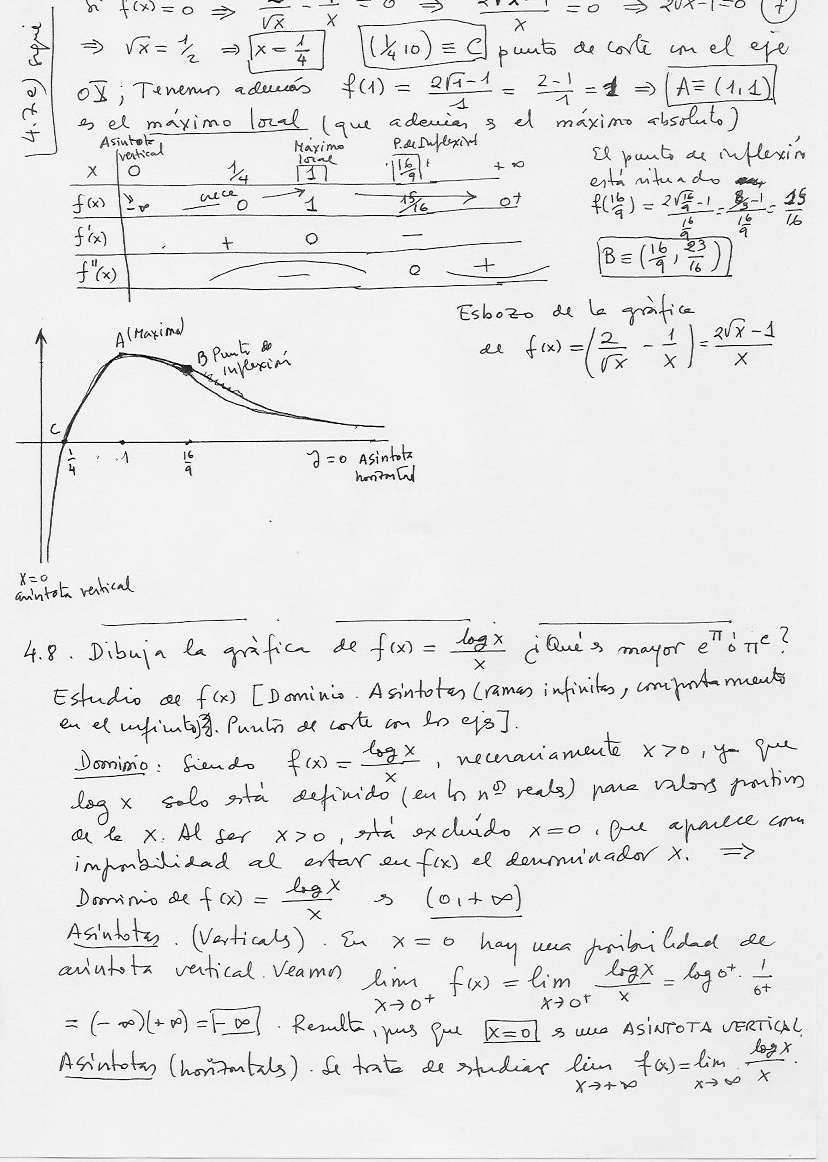 si f(x)=0 ⇒ 2/√x - 1/x = 0 ⇒ (2√x-1)/x = 0 ⇒ 2√x-1=0 (7)
4.7e) sigue
⇒ √x = 1/2 ⇒ x = 1/4 (1/4, 0) ≡ C punto de corte con el eje
OX; Tenemos además f(1) = (2√1-1)/1 = (2-1)/1 = 1 ⇒ A≡(1,1)
es el máximo local (que además es el máximo absoluto)
Asíntota vertical Máximo local P. de Inflexión
x 0 1/4 1 16/9 +∞
f(x) -∞ crece 0 1 15/16 0+
f'(x) + 0 −
f''(x) − 0 +
El punto de inflexión
está situado
f(16/9) = (2√(16/9) -1)/(16/9) = (8/3 -1)/(16/9) = 15/16
B ≡ (16/9, 23/16)
Esbozo de la gràfica
de f(x) = (2/√x - 1/x) = (2√x-1)/x
A (Maximo)
B Punto de
inflexión
C
1/4 1 16/9
y=0 Asíntota
horizontal
x=0
asíntota vertical
4.8. Dibuja la gràfica de f(x) = log x/x ¿Qué es mayor e^π ó π^e?
Estudio de f(x) [Dominio. Asíntotas (ramas infinitas, comportamiento
en el infinito). Puntos de corte con los ejes].
Dominio: Siendo f(x) = log x/x, necesariamente x>0, ya que
log x solo está definido (en los nºs reales) para valores positivos
de la x. Al ser x>0, está excluído x=0, que aparece como
imposibilidad al estar en f(x) el denominador x. ⇒
Dominio de f(x) = log x/x es (0,+∞)
Asíntotas. (Verticales). En x=0 hay una posibilidad de
asíntota vertical. Veamos lim x→0+ f(x) = lim x→0+ log x/x = log 0+ · 1/0+
= (-∞)(+∞) = -∞. Resulta, pues que x=0 es una ASÍNTOTA VERTICAL.
Asíntotas (horizontales). Se trata de estudiar lim x→+∞ f(x) = lim x→∞ log x/x.